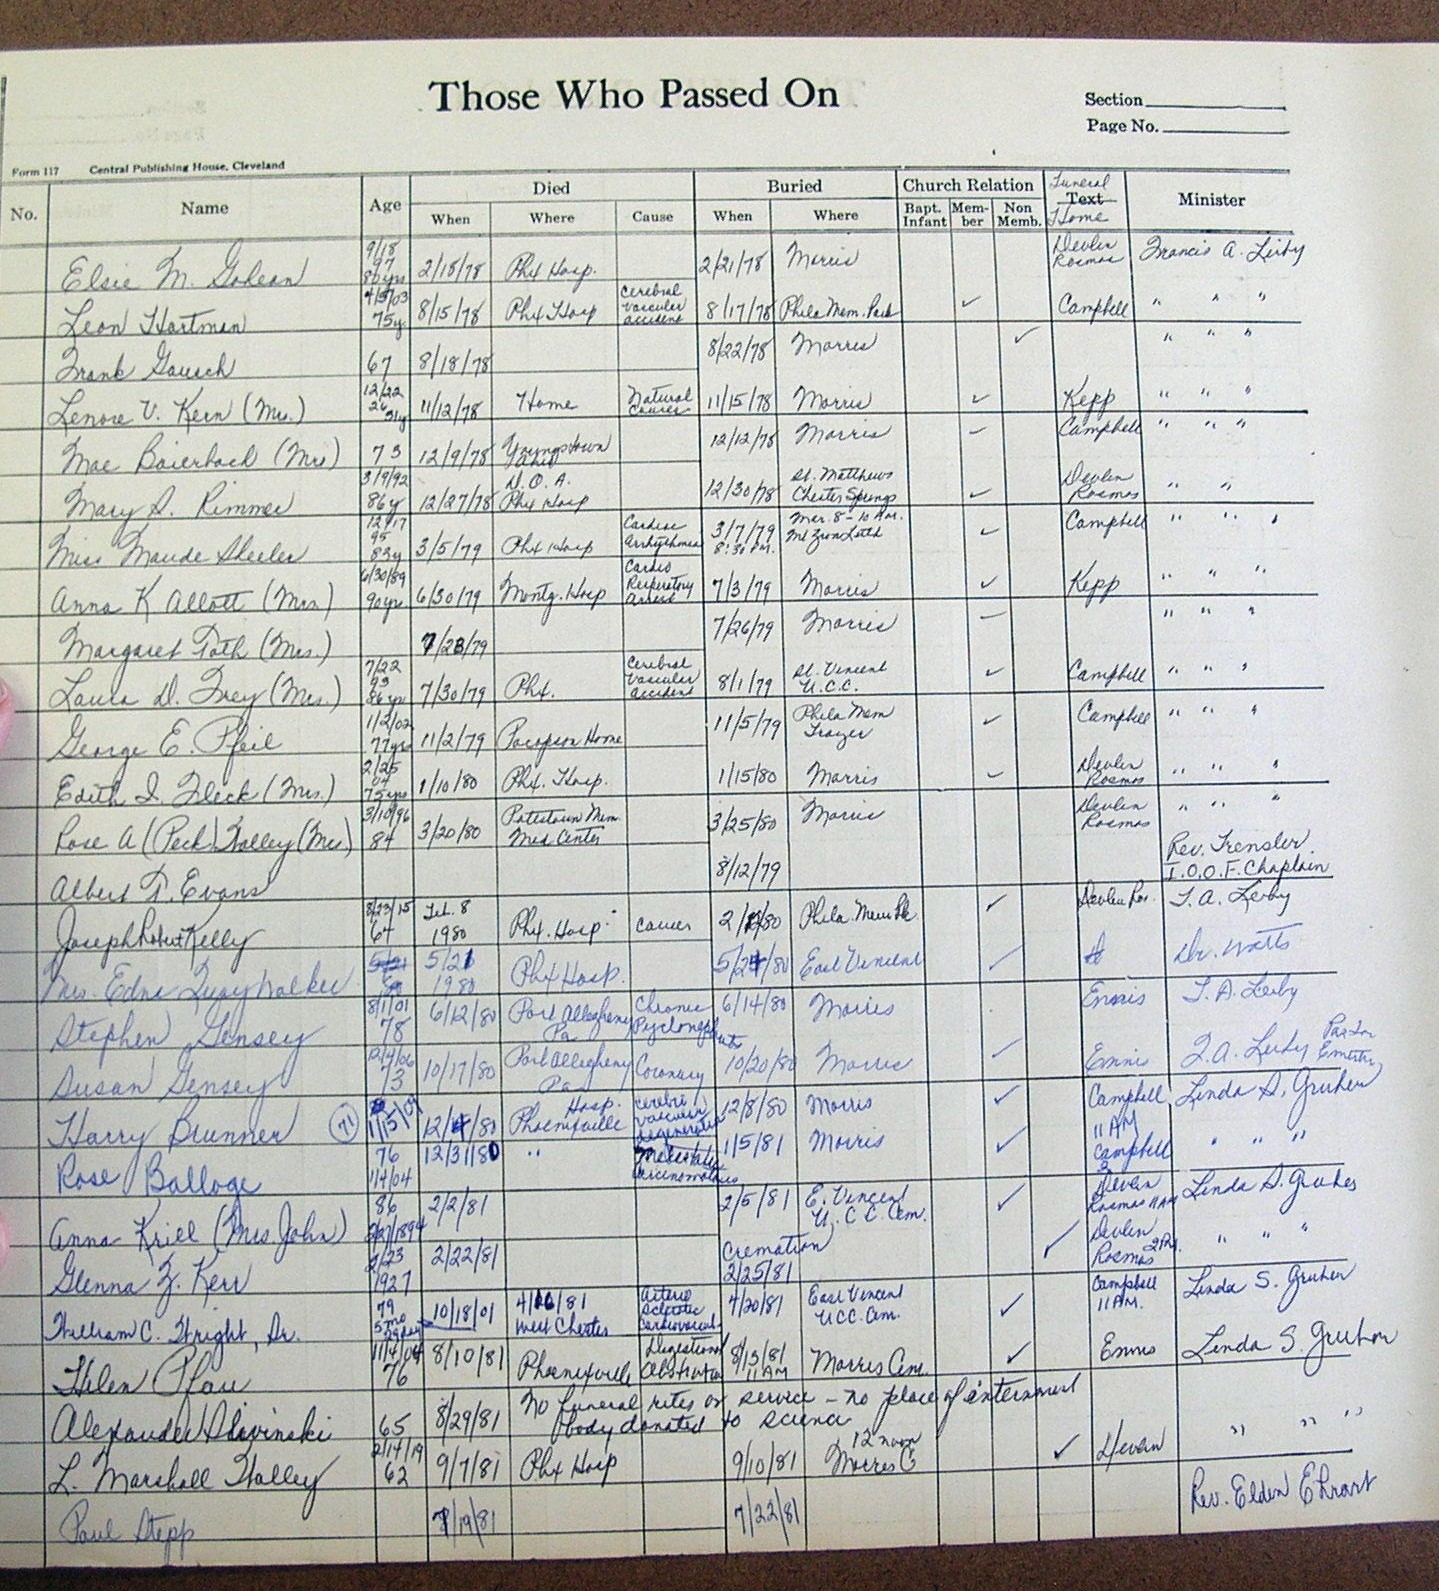 Those Who Passed On
Section
Page No.
Form 117 Central Publishing House, Cleveland
No. Name Age Died Buried Church Relation Funeral Text Home Minister
When Where Cause When Where Bapt. Infant Mem-ber Non Memb.
Elsie M. 9/18 97 80 yrs 2/18/78 Phx Hosp. 2/21/78 Morris Devlin Rosmos Francis A. Lerby
Leon Hartman 4/3/03 75y. 8/15/78 Phx Hosp Cerebral vascular accident 8/17/78 Phila Mem. Park ✓ Campbell " " "
Frank Gausch 67 8/18/78 8/22/78 Morris ✓ " " "
Lenore V. Kern (Mrs.) 12/22 26 51y 11/12/78 Home Natural Causes 11/15/78 Morris ✓ Kepp " " "
Mae Baierbach (Mrs) 73 12/9/78 Youngstown Ohio 12/12/78 Morris ✓ Campbell " " "
Mary S. Rimmer 3/9/92 86y 12/27/78 D.O.A. Phx Hosp 12/30/78 St. Matthews Chester Springs ✓ Devlin Rosmos " "
Miss Maude Sheeler 12/17 95 83y 3/5/79 Phx Hosp Cardiac arrhythmia 3/7/79 8:30 P.M. Mar. 8 - 10 A.M. Mt Zion Luth ✓ Campbell " " "
Anna K Allott (Mrs.) 6/30/89 90yr 6/30/79 Montg. Hosp Cardio Respiratory Arrest 7/3/79 Morris ✓ Kepp " " "
Margaret Toth (Mrs.) 7/23/79 7/26/79 Morris ✓ " " "
Laura D. Frey (Mrs.) 7/22 93 86yr 7/30/79 Phx. Cerebral vascular accident 8/1/79 St. Vincent U.C.C. ✓ Campbell " " "
George E. Pfeil 1/2/02 77yrs 11/2/79 Pocopson Home 11/5/79 Phila Mem Frazer ✓ Campbell " " "
Edith I. Fleck (Mrs.) 2/25 04 75yrs 1/10/80 Phx. Hosp. 1/15/80 Morris ✓ Devlin Rosmos " " "
Rose A (Peck) Holley (Mrs) 3/10/96 84 3/20/80 Pottstown Mem. Med Center 3/25/80 Morris Devlin Rosmos " " "
Albert F. Evans 8/12/79 Rev. Trensler I.O.O.F. Chaplain
Joseph Robert Kelly 8/23/15 64 Feb. 8 1980 Phx. Hosp. Cancer 2/12/80 Phila. Mem Pk ✓ Devlin Ros. F. A. Lerby
Mrs. Edna Walker 5/21 1980 Phx Hosp. 5/24/80 East Vincent ✓ Dr. Watts
Stephen Gensey 8/1/01 78 6/12/80 Port Allegheny Pa Chronic 6/14/80 Morris Ennis F. A. Lerby
Susan Gensey 73 10/17/80 Port Allegheny Pa Coronary 10/20/80 Morris ✓ Ennis F. A. Lerby Pastor
Harry Brunner 71 1/15/09 12/4/80 Hosp. Phoenixville cerebro vascular degeneration 12/8/80 Morris ✓ Campbell 11 AM Linda S. Gruber
Rose Balloge 76 1/4/04 12/31/80 " Metastatic carcinomatosis 1/5/81 Morris ✓ Campbell " " "
Anna Krill (Mrs John) 86 2/27/1894 2/2/81 2/5/81 E. Vincent U.C.C. Cem. ✓ Devlin Rosmos 11 AM Linda S. Gruber
Glenna Z. Kerr 2/23 1927 2/22/81 Cremation 2/25/81 ✓ Devlin Rosmos 2 PM. " " "
William C. Wright, Sr. 79 5 mo 10/18/01 4/16/81 West Chester Arterio Sclerotic Cardiovascul. 4/20/81 East Vincent UCC. Cem. ✓ Campbell 11 AM. Linda S. Gruber
Helen Pfau 11/4/04 76 8/10/81 Phoenixville Digestional Obstruction 8/13/81 11 AM Morris Cem. ✓ Ennis Linda S. Gruber
Alexander Slivinski 65 8/29/81 No funeral rites or service - no place of internment
body donated to science " " "
L. Marshall Holley 2/14/19 62 9/7/81 Phx Hosp 9/10/81 12 noon Morris C ✓ Devlin
Paul Stepp 7/19/81 7/22/81 Rev. Elden Ehrart